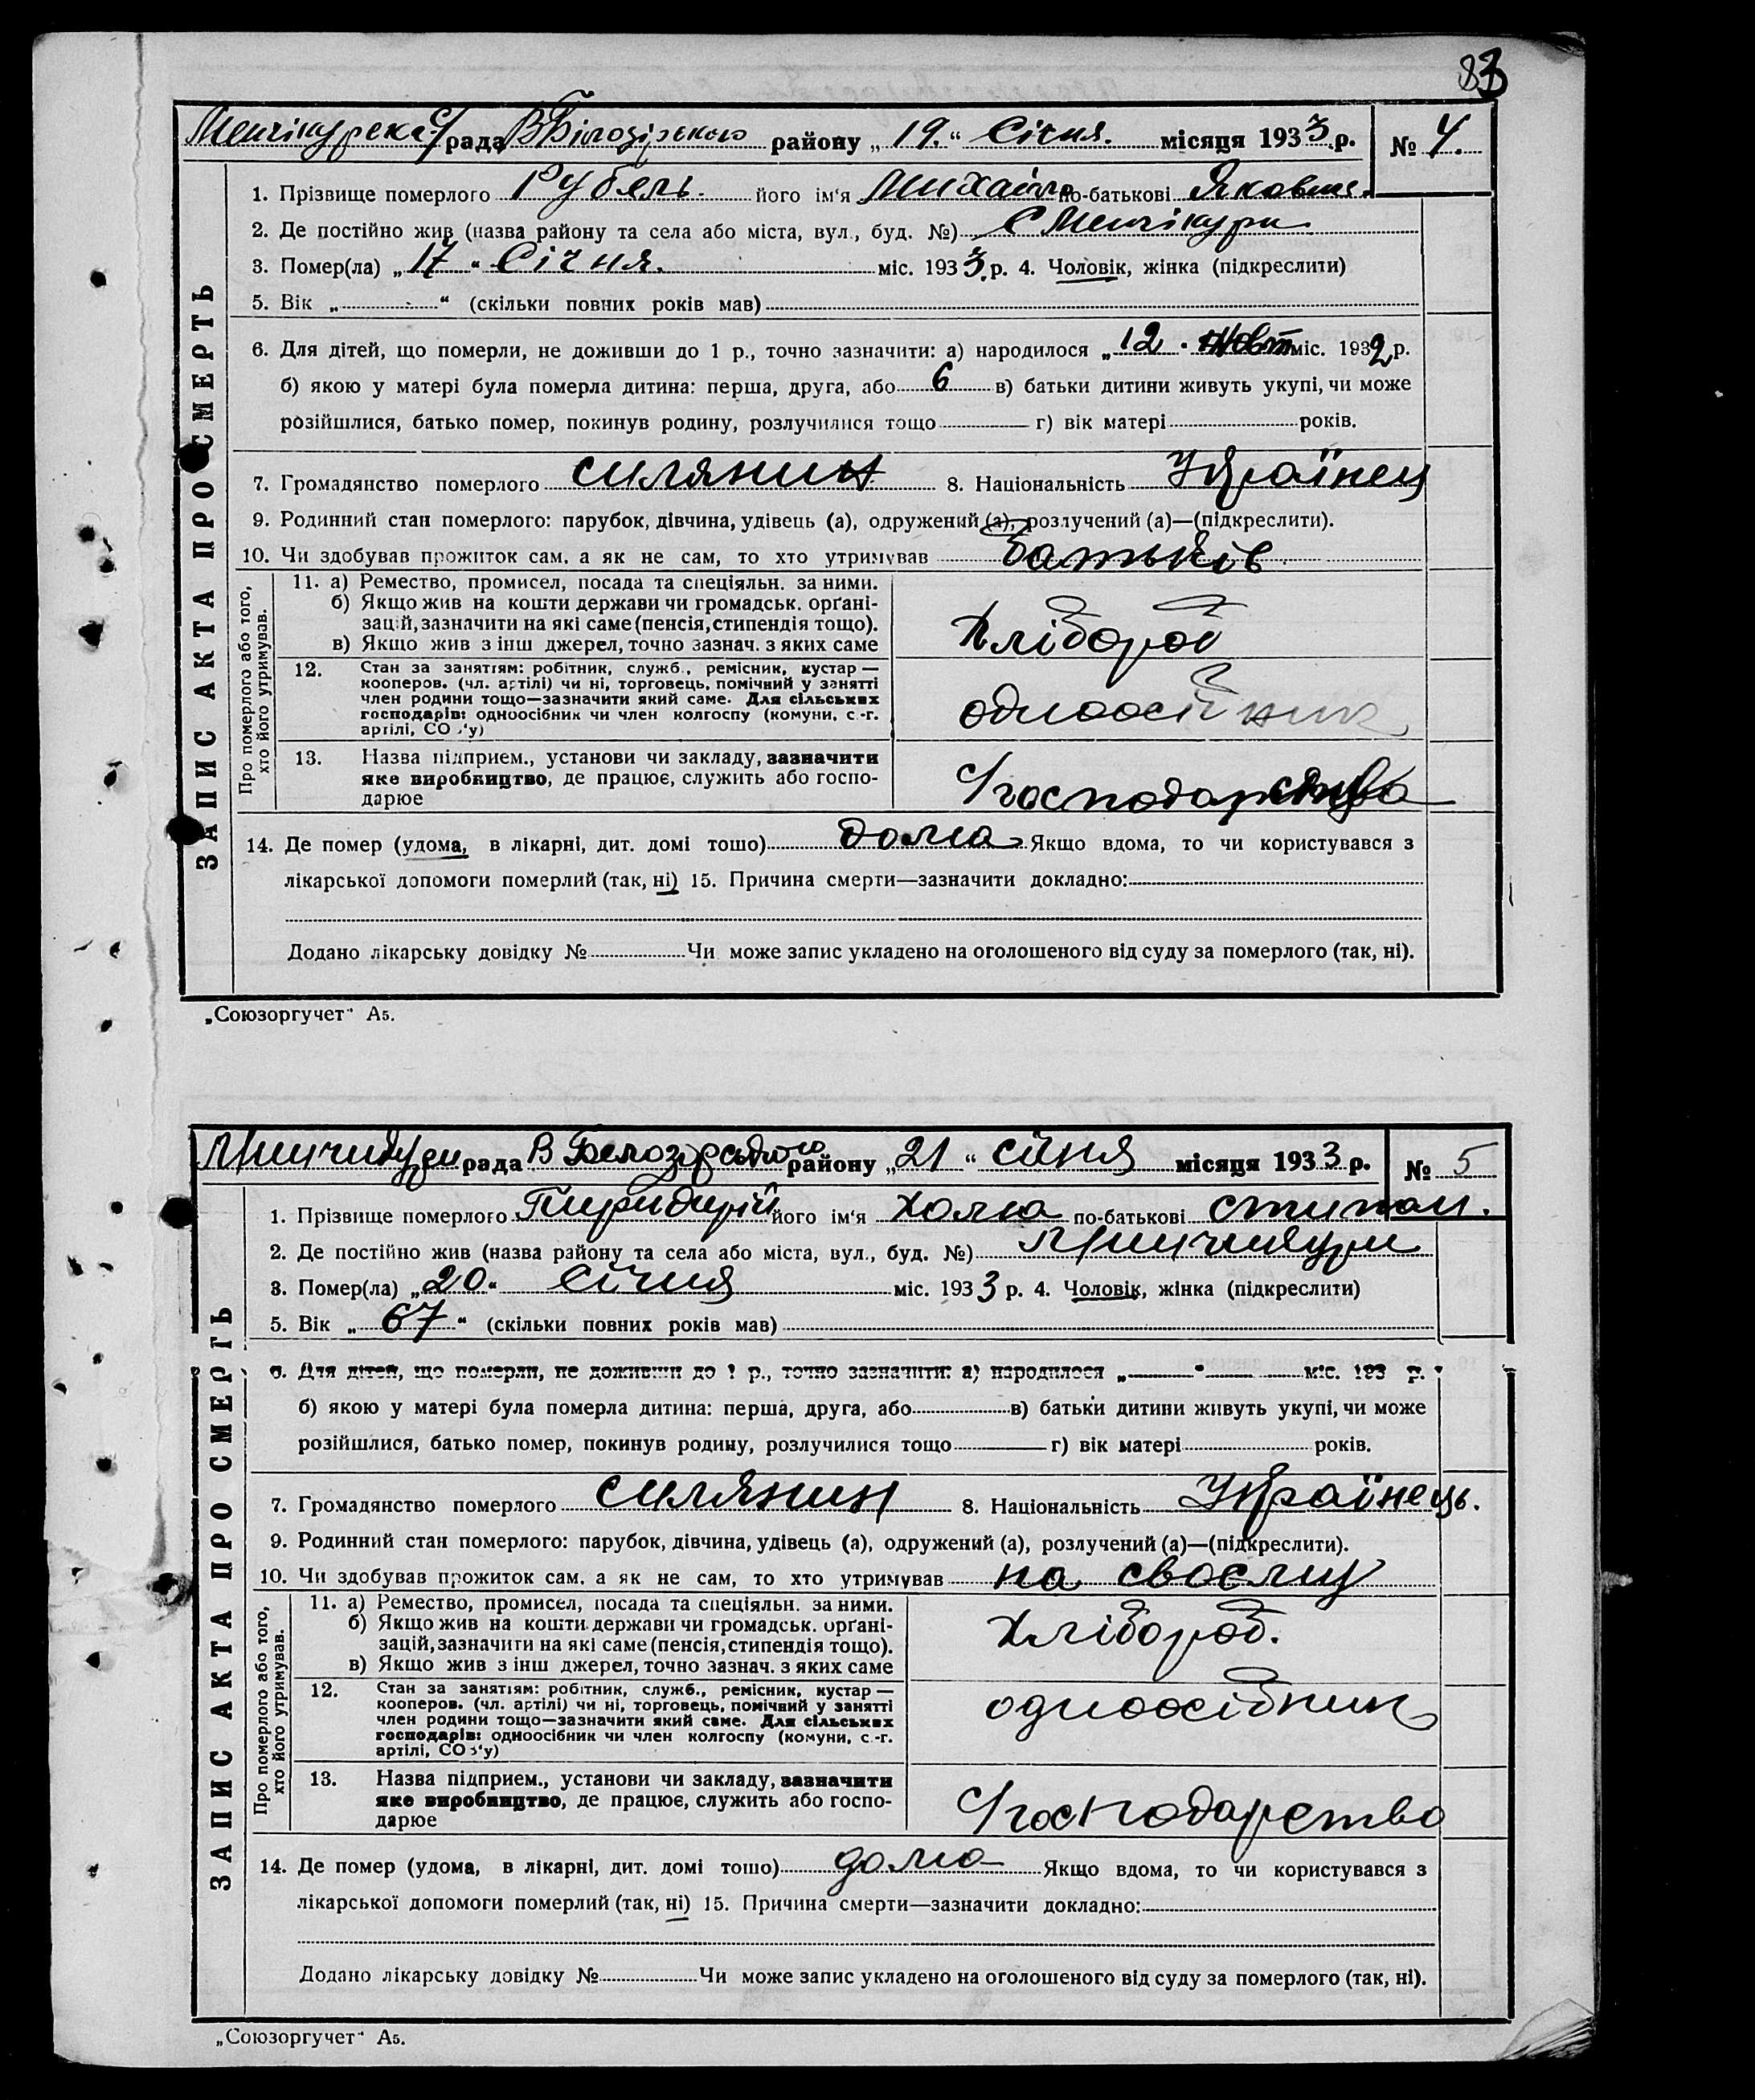 83
Менчікурська с/рада В Білозірського району „19.“ Січня. місяця 1933 р. № 4.
1. Прізвище померлого Рубель. його ім'я Михайло по-батькові Яковл.
2. Де постійно жив (назва району та села або міста, вул., буд. №) С Менчікури
3. Помер(ла) „17“ Січня. міс. 1933 р. 4. Чоловік, жінка (підкреслити)
5. Вік „ “ (скільки повних років мав)
6. Для дітей, що померли, не доживши до 1 р., точно зазначити: а) народилося „12. Жовт міс. 1932 р.
б) якою у матері була померла дитина: перша, друга, або 6 в) батьки дитини живуть укупі, чи може
розійшлися, батько помер, покинув родину, розлучилися тощо г) вік матері років.
7. Громадянство померлого силянин 8. Національність Українец
9. Родинний стан померлого: парубок, дівчина, удівець (а), одружений (а), розлучений (а)—(підкреслити).
10. Чи здобував прожиток сам, а як не сам, то хто утримував Батьків
ЗАПИС АКТА ПРО СМЕРТЬ
Про померлого або того, хто його утримував.
11. а) Ремество, промисел, посада та спеціяльн. за ними.
б) Якщо жив на кошти держави чи громадськ. орґані-
зацій, зазначити на які саме (пенсія, стипендія тощо).
в) Якщо жив з інш джерел, точно зазнач. з яких саме
Хлібороб
12. Стан за заняттям: робітник, служб., ремісник, кустар —
кооперов. (чл. артілі) чи ні, торговець, помічний у занятті
член родини тощо—зазначити який саме. Для сільських
господарів: одноосібник чи член колгоспу (комуни, с.-г.
артілі, СО з'у)
одноосібник
13. Назва підприєм., установи чи закладу, зазначити
яке виробництво, де працює, служить або госпо-
дарює
С/господарства
14. Де помер (удома, в лікарні, дит. домі тошо) дома Якщо вдома, то чи користувався з
лікарської допомоги померлий (так, ні) 15. Причина смерти—зазначити докладно:
Додано лікарську довідку № Чи може запис укладено на оголошеного від суду за померлого (так, ні).
„Союзоргучет“ А5.
рада В району „21“ січня місяця 1933 р. № 5
1. Прізвище померлого його ім'я Хома по-батькові степан.
2. Де постійно жив (назва району та села або міста, вул., буд. №)
3. Помер(ла) „20“ Січня міс. 1933 р. 4. Чоловік, жінка (підкреслити)
5. Вік „67“ (скільки повних років мав)
6. Для дітей, що померли, не доживши до 1 р., точно зазначити: а) народилося „ “ міс. 193 р.
б) якою у матері була померла дитина: перша, друга, або в) батьки дитини живуть укупі, чи може
розійшлися, батько помер, покинув родину, розлучилися тощо г) вік матері років.
7. Громадянство померлого силянин 8. Національність Українець.
9. Родинний стан померлого: парубок, дівчина, удівець (а), одружений (а), розлучений (а)—(підкреслити).
10. Чи здобував прожиток сам, а як не сам, то хто утримував на своєму
ЗАПИС АКТА ПРО СМЕРТЬ
Про померлого або того, хто його утримував.
11. а) Ремество, промисел, посада та спеціяльн. за ними.
б) Якщо жив на кошти держави чи громадськ. орґані-
зацій, зазначити на які саме (пенсія, стипендія тощо).
в) Якщо жив з інш джерел, точно зазнач. з яких саме
Хлібороб.
12. Стан за заняттям: робітник, служб., ремісник, кустар —
кооперов. (чл. артілі) чи ні, торговець, помічний у занятті
член родини тощо—зазначити який саме. Для сільських
господарів: одноосібник чи член колгоспу (комуни, с.-г.
артілі, СО з'у)
одноосібник
13. Назва підприєм., установи чи закладу, зазначити
яке виробництво, де працює, служить або госпо-
дарює
С/господарство
14. Де помер (удома, в лікарні, дит. домі тошо) дома Якщо вдома, то чи користувався з
лікарської допомоги померлий (так, ні) 15. Причина смерти—зазначити докладно:
Додано лікарську довідку № Чи може запис укладено на оголошеного від суду за померлого (так, ні).
„Союзоргучет“ А5.